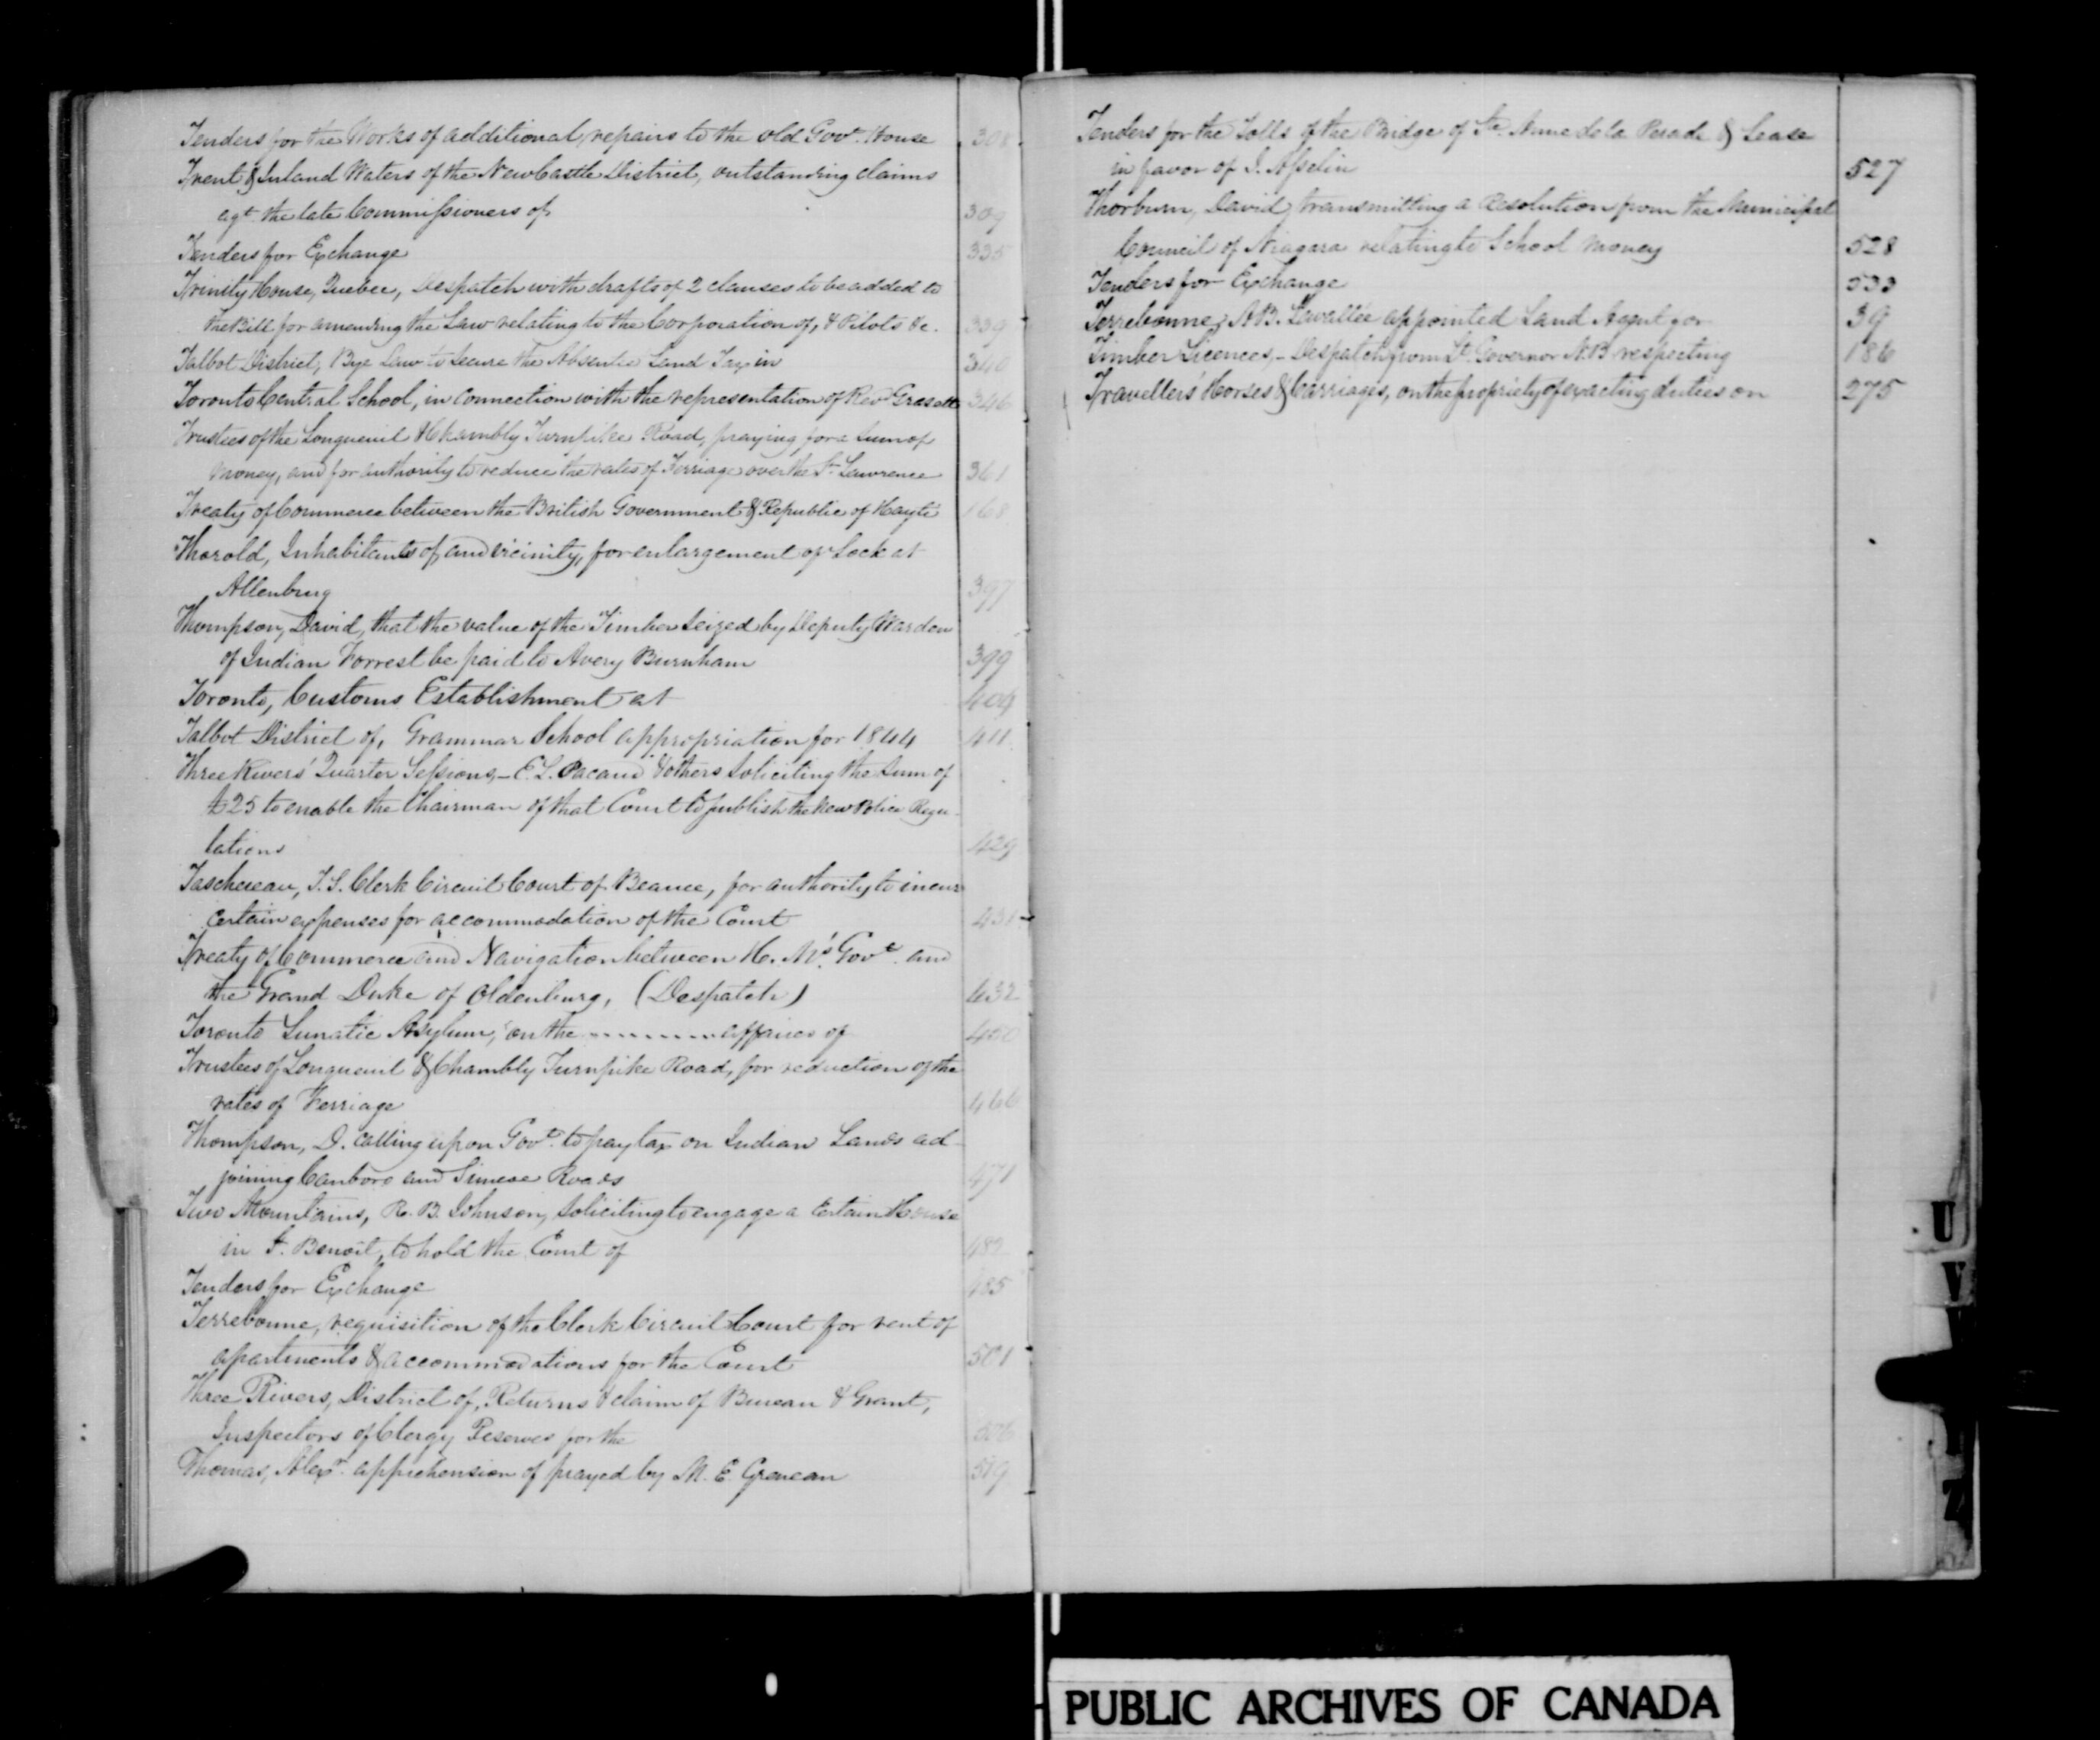 Tenders for the Works of additional repairs to the old Govt. House 308
Trent & Inland Waters of the NewCastle District, outstanding claims
agt. the late Commissioners of 309
Tenders for Exchange 335
Trinity House, Quebec, Despatch with drafts of 2 clauses to be added to
the Bill for amending the Law relating to the Corporation of, & Pilots &c. 339
Talbot District, Bye Law to secure the Absentee Land Tax in 340
Toronto Central School, in connection with the representation of Revd. Grasett 346
Trustees of the Longueuil & Chambly Turnpike Road, praying for a sum of
money, and for authority to reduce the rates of Ferriage over the St. Lawrence 361
Treaty of Commerce between the British Government & Republic of Hayti 168
Thorold, Inhabitants of, and vicinity, for enlargement of Lock at
Allenburg 397
Thompson, David, that the value of the Timber seized by Deputy Warden
of Indian Forrest be paid to Avery Burnham 399
Toronto, Customs Establishment at 404
Talbot District of, Grammar School appropriation for 1844 411
Three Rivers' Quarter Sessions,– E. L. Pacaud & others soliciting the sum of
£25 to enable the Chairman of that Court to publish the new Police Regu-
lations 429
Taschereau, T. S. Clerk Circuit Court of Beauce, for authority to incur
certain expenses for accommodation of the Court
Treaty of Commerce and Navigation between H. M's. Govt. and
the Grand Duke of Oldenburg, (Despatch) 432
Toronto Lunatic Asylum, on the .......... affairs of
Trustees of Longueuil & Chambly Turnpike Road, for reduction of the
rates of Ferriage 466
Thompson, D. calling upon Govt. to pay tax on Indian Lands ad-
joining Canboro and Simcoe Roads 471
Two Mountains, R. B. Johnson, soliciting to engage a certain House
in St. Benoit, to hold the Court of 482
Tenders for Exchange 485
Terrebonne, requisition of the Clerk Circuit Court for rent of
apartments & accommodations for the Court 501
Three Rivers, District of, Returns & claim of Bureau & Grant,
Inspectors of Clergy Reserves for the 506
Thomas, Alexr. apprehension of prayed by M. E. 519
Tenders for the Tolls of the Bridge of Ste. Anne de la Perade & Lease
in favor of J. Asselin 527
Thorburn, David, transmitting a Resolution from the Municipal
Council of Niagara relating to School money 528
Tenders for Exchange 533
Terrebonne, A. B. Lavallée appointed Land Agent for 39
Timber Licences,– Despatch from Lt. Governor N.B respecting 186
Travellers' Horses & Carriages, on the propriety of exacting duties on 275
U
V
Z
PUBLIC ARCHIVES OF CANADA